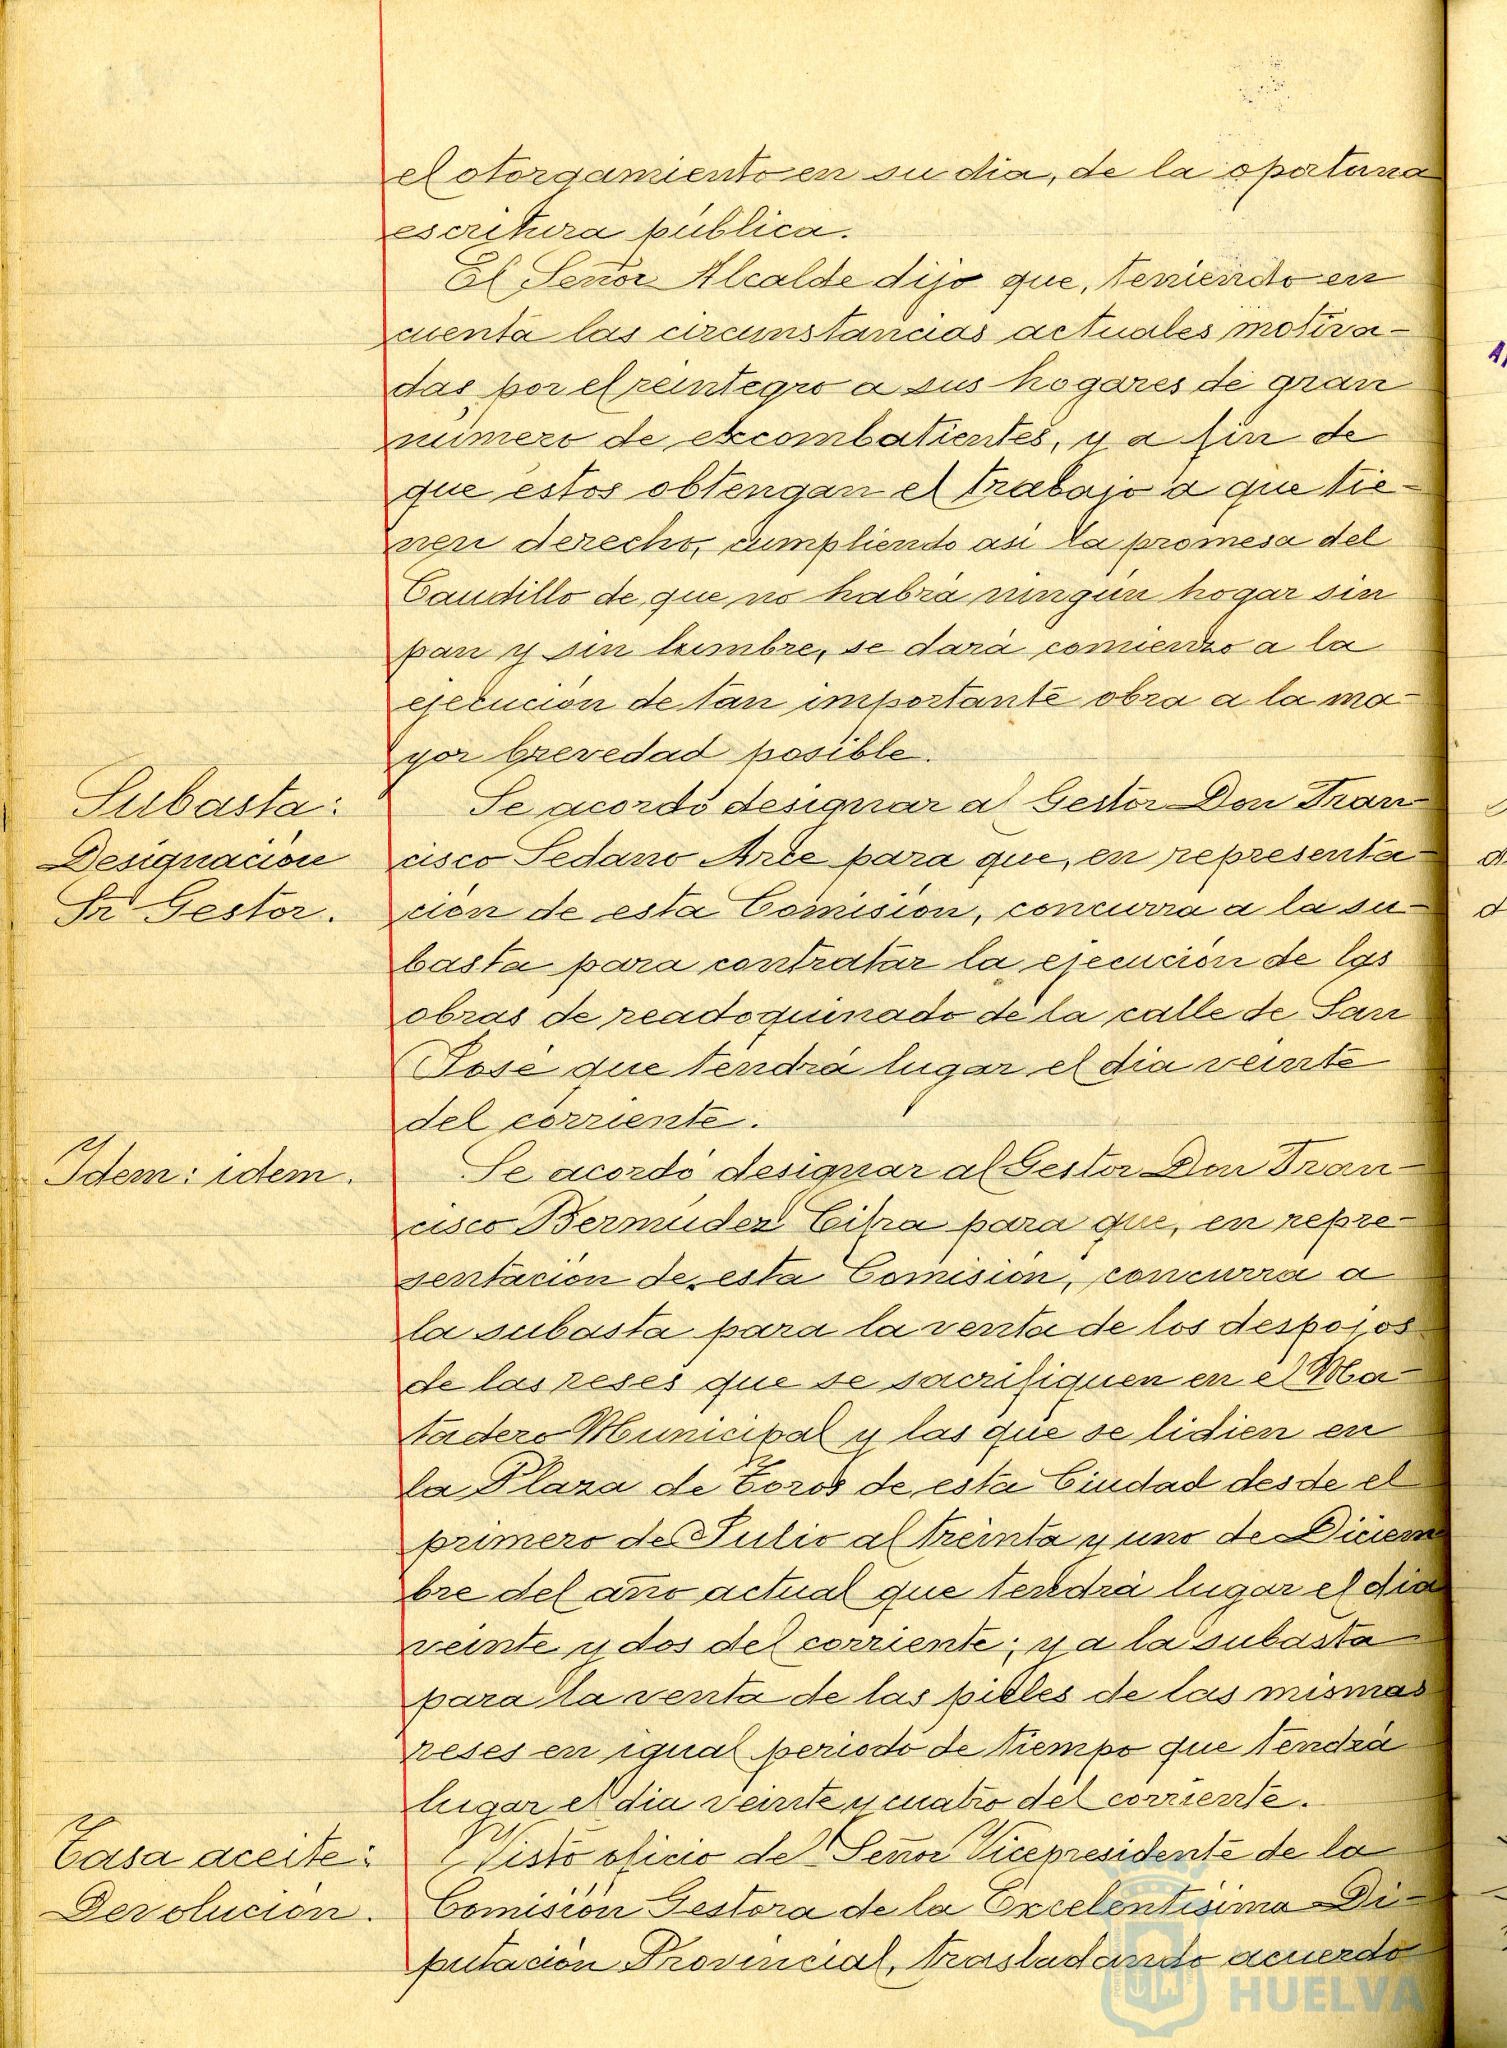 el otorgamiento en su dia, de la oportuna
escritura pública.
El Señor Alcalde dijo que, teniendo en
cuenta las circunstancias actuales motiva-
das por el reintegro a sus hogares de gran
número de excombatientes, y a fin de
que éstos obtengan el trabajo a que tie-
nen derecho, cumpliendo asi la promesa del
Caudillo de que no habrá ningún hogar sin
pan y sin lumbre, se dará comienzo a la
ejecución de tan importante obra a la ma-
yor brevedad posible.
Subasta:
Designación
Sr Gestor.
Se acordó designar al Gestor Don Fran-
cisco Sedano Arce para que, en representa-
ción de esta Comisión, concurra a la su-
basta para contratar la ejecución de las
obras de readoquinado de la calle de San
José que tendrá lugar el dia veinte
del corriente.
Idem: idem.
Se acordó designar al Gestor Don Fran-
cisco Bermúdez Cifra para que, en repre-
sentación de esta Comisión, concurra a
la subasta para la venta de los despojos
de las reses que se sacrifiquen en el Ma-
tadero Municipal y las que se lidien en
la Plaza de Toros de esta Ciudad desde el
primero de Julio al treinta y uno de Diciem
bre del año actual que tendrá lugar el dia
veinte y dos del corriente; y a la subasta
para la venta de las pieles de las mismas
reses en igual periodo de tiempo que tendrá
lugar el dia veinte y cuatro del corriente.
Tasa aceite:
Devolución.
Visto oficio del Señor Vicepresidente de la
Comisión Gestora de la Excelentísima Di-
putación Provincial, trasladando acuerdo
HUELVA